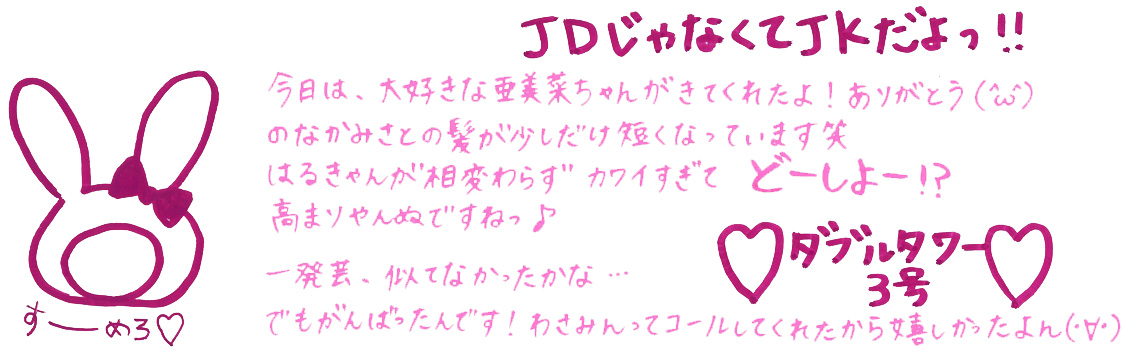 JDじゃなくてJKだよっ!!
今日は、大好きな亜美菜ちゃんがきてくれたよ！ありがとう(^ω^)
のなかみさとの髪が少しだけ短くなっています笑
はるきゃんが"相変わらず"カワイすぎて どーしよー!?
高まりやんぬですねっ♪
ダブルタワー
3号
一発芸、似てなかったかな…
でもがんばったんです！わさみんってコールしてくれたから嬉しかったよん(･∀･)
すーめろ♡